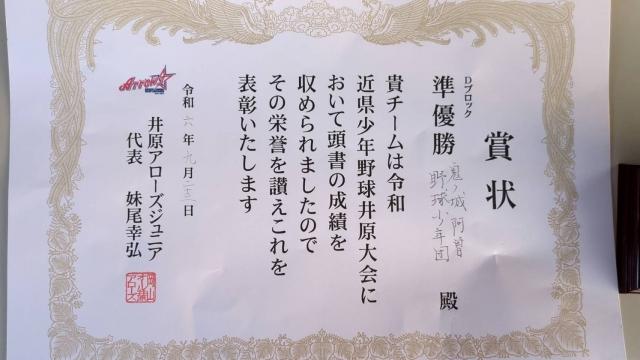 賞状
Dブロック
準優勝
鬼ノ城 阿曽
野球少年団
殿
貴チームは令和
近県少年野球井原大会に
おいて頭書の成績を
収められましたので
その栄誉を讃えこれを
表彰いたします
令和 六 年 九 月 二三 日
井原アローズジュニア
代表 妹尾幸弘
Arrows